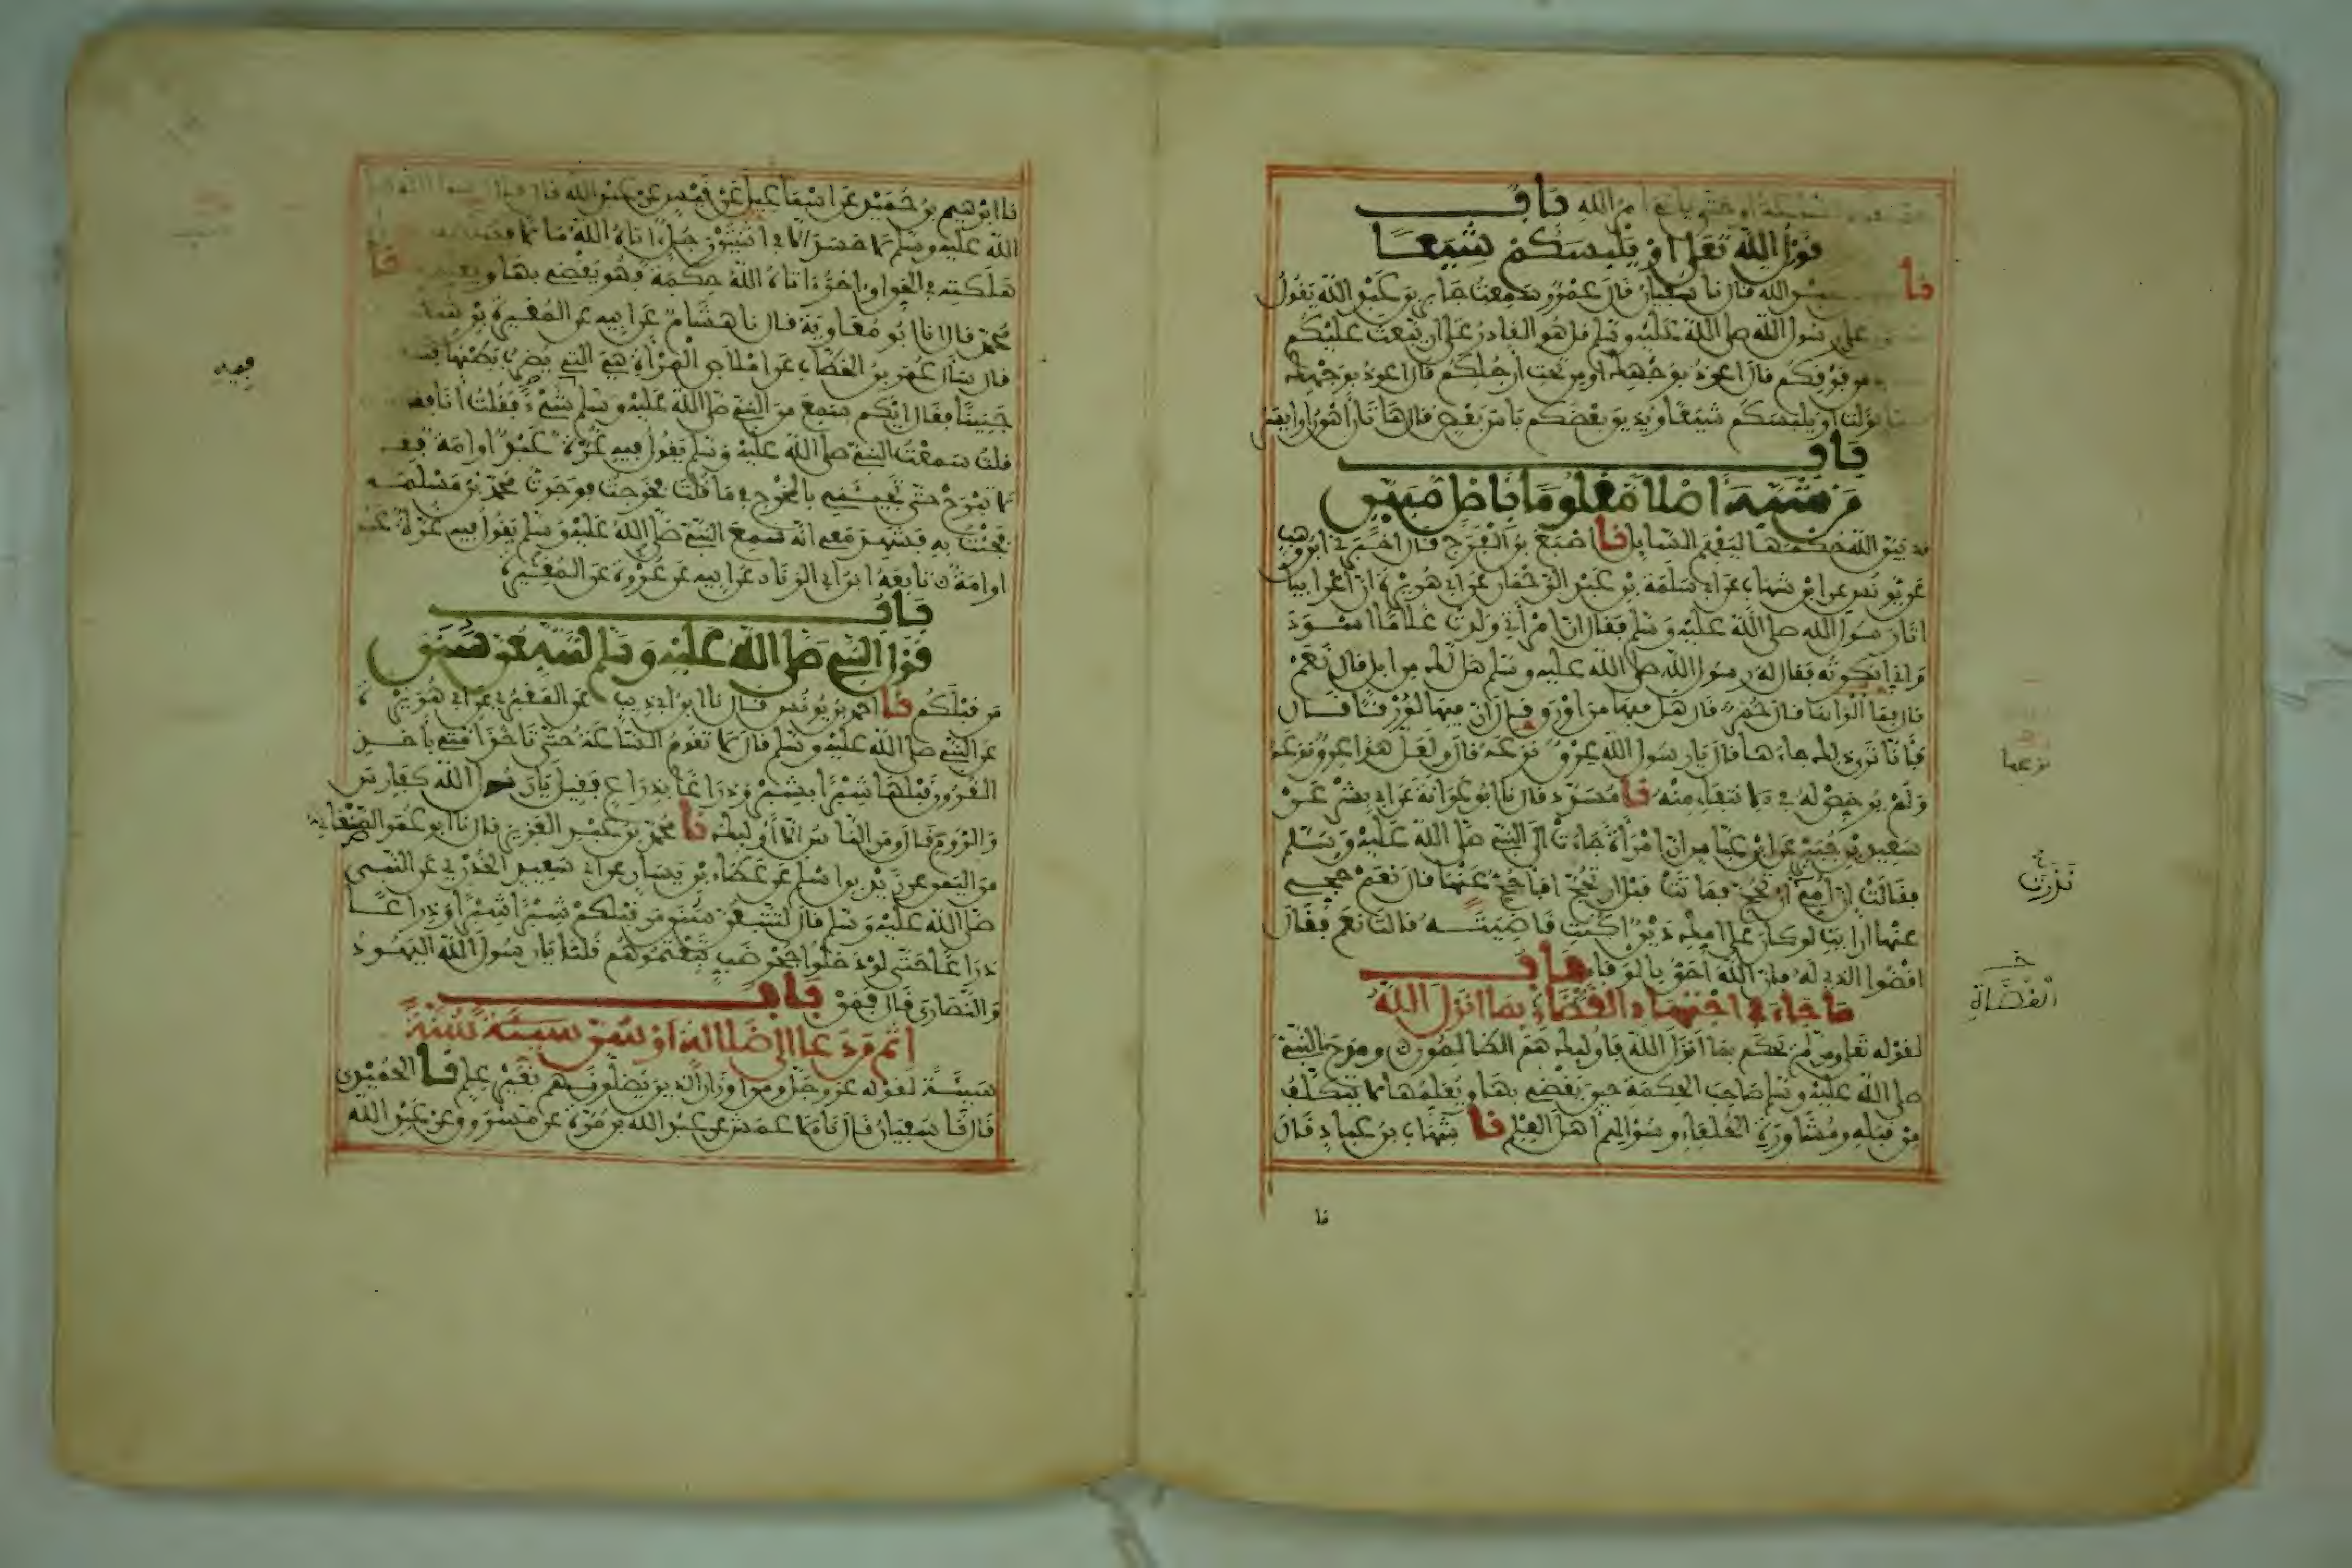 أمر الله باب
قول الله تعلى او يلبسكم شيعا
نا عبد الله قال نا سفيان قال عمرو سمعت جابر بن عبد الله يقول
على رسول الله صلى الله عليه وسلم قل هو القادر على ان يبعث عليكم
من فوقكم قال اعوذ بوجهك او من تحت ارجلكم قال اعوذ بوجهك
نزلت او يلبسكم شيعا ويذيق بعضكم باس بعض قال هاتان اهون او ايسر
باب
من شبه أصلا معلوما باصل مبين
قد بين الله حكمها ليفهم السايل نا اصبغ بن الفرج قال اخبرني ابن وهب
عن يونس عن ابن شهاب عن ابي سلمة بن عبد الرحمان عن ابي هريرة ان اعرابيا
اتا رسول الله صلى الله عليه وسلم فقال ان امرأتي ولدت غلاما اسود
واني انكرته فقال له رسول الله صلى الله عليه وسلم هل لك من ابل قال نعم
قال فما الوانها قال حمر قال هل فيها من اورق قال ان فيها لورقا قال
فأنا ترى ذلك جاءها قال يا رسول الله عرق نزعه قال ولعل هذا عرق نزعه
ولم يرخص له في الانتفاء منه نا مسدد قال نا ابو عوانة عن ابي بشر عن
سعيد بن جبير عن ابن عباس ان امرأة جاءت الى النبي صلى الله عليه وسلم
فقالت ان أمي ان تحج فماتت قبل ان تحج افاحج عنها قال نعم حجي
عنها ارايت لو كان على امك دين اكنت قاضيته قالت نعم فقال
اقضوا الذي له فان الله احق بالوفاء باب
ما جاء في اجتهاد القضاء بما انزل الله
لقوله تعلى ومن لم يحكم بما أنزل الله فاوليك هم الظالمون ومدح النبي
صلى الله عليه وسلم صاحب الحكمة حين يقضي بها ويعلمها لا يتكلف
من قبله ومشاورة الخلفاء وسؤالهم أهل العلم نا شهاب بن عباد قال
نزعها
نذرت
القضاة
نا
نا ابرهيم بن حميد عن اسماعيل عن قيس عن عبد الله قال قال رسول الله صلى
الله عليه وسلم لا حسد الا في اثنتين رجل ءاتاه الله مالا فسلط على
هلكته في الحق واخر ءاتاه الله حكمة فهو يقضي بها ويعلمها نا
محمد قال انا ابو معاوية قال نا هشام عن ابيه عن المغيرة بن شعبة
قال سأل عمر بن الخطاب عن املاص المرأة هي التي يضرب بطنها
جنينا فقال ايكم سمع من النبي صلى الله عليه وسلم فيه شيء فقلت أنا فقال
قلت سمعت النبي صلى الله عليه وسلم يقول فيه غرة عبد او امة فقال
لا تبرح حتى تجيئني بالمخرج فيما قلت فخرجت فوجدت محمد بن مسلمة
فجئت به فشهد معي انه سمع النبي صلى الله عليه وسلم يقول فيه غرة عبد
او امة تابعه ابن ابي الزناد عن ابيه عن عروة عن المغيرة
باب
قول النبي صلى الله عليه وسلم لتتبعن سنن
من قبلكم نا احمد بن يونس قال نا ابن ابي ذيب عن المقبري عن ابي هريرة
عن النبي صلى الله عليه وسلم قال لا تقوم الساعة حتى تاخذ امتي بأخذ
القرون قبلها شبرا بشبر وذراعا بذراع فقيل يا رسول الله كفارس
والروم قال ومن الناس الا أوليك نا محمد بن عبد العزيز قال نا ابو عمر الصنعاني
من اليمن عن زيد بن اسلم عن عطاء بن يسار عن ابي سعيد الخدري عن النبي
صلى الله عليه وسلم قال لتتبعن سنن من قبلكم شبرا شبرا وذراعا
ذراعا حتى لو دخلوا جحر ضب تبعتموهم قلنا يا رسول الله اليهود
والنصارى قال فمن باب
اثم من دعا الى ضلالة او سن سيئة سنة
سيئة لقوله عز وجل ومن اوزار الذين يضلونهم بغير علم نا الحميدي
قال نا سفيان قال نا الاعمش عن عبد الله بن مرة عن مسروق عن عبد الله
فيه